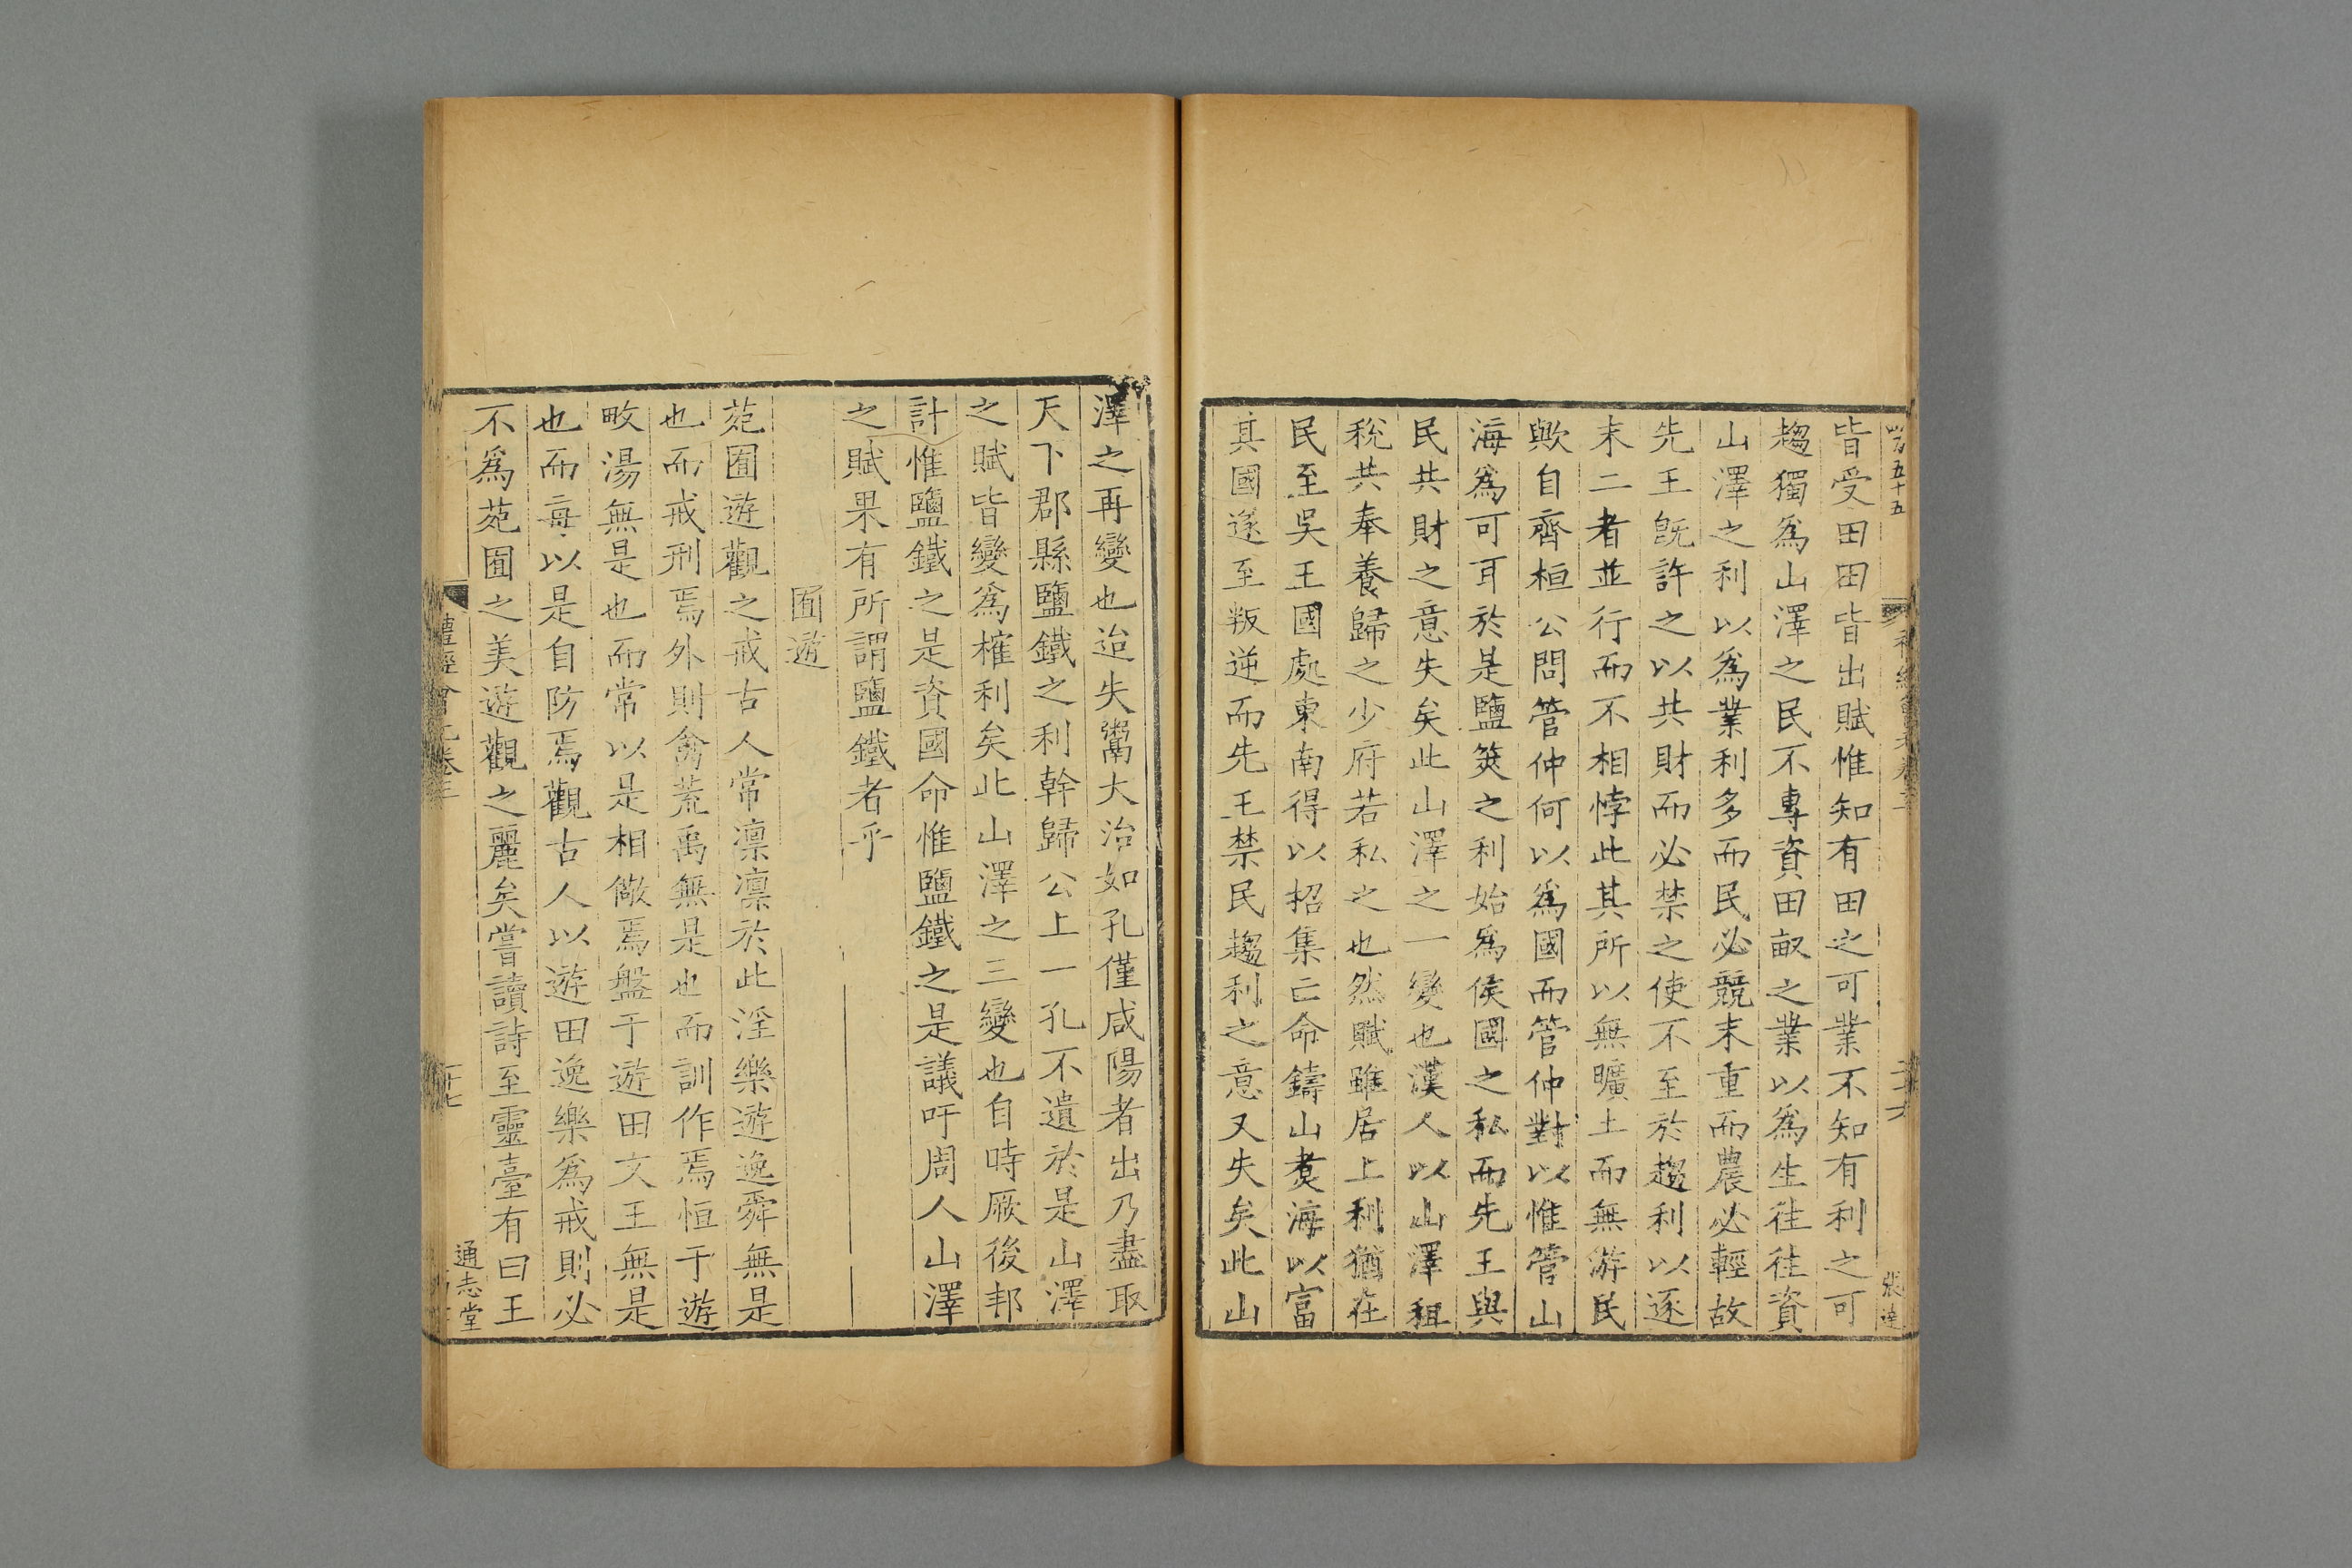 皆受田田皆出賦惟知有田之可業不知有利之可
趨獨爲山澤之民不專資田畝之業以爲生往往資
山澤之利以爲業利多而民必競末重而農必輕故
先王旣許之以共財而必禁之使不至於趨利以逐
末二者並行而不相悖此其所以無曠土而無游民
歟自齊桓公問管仲何以爲國而管仲對以惟管山
海爲可耳於是鹽筴之利始爲侯國之私而先王與
民共財之意失矣此山澤之一變也漢人以山澤租
稅共奉養歸之少府若私之也然賦雖居上利猶在
民至吳王國處東南得以招集亡命鑄山煑海以富
其國遂至叛逆而先王禁民趨利之意又失矣此山
澤之再變也迨夫鬻大冶如孔僅咸陽者出乃盡取
天下郡縣鹽鐵之利幹歸公上一孔不遺於是山澤
之賦皆變爲榷利矣此山澤之三變也自時厥後邦
計惟鹽鐵之是資國命惟鹽鐵之是議吁周人山澤
之賦果有所謂鹽鐵者乎
囿遊
苑囿遊觀之戒古人常凛凛於此淫樂遊逸舜無是
也而戒刑焉外則禽荒禹無是也而訓作焉恒于遊
畋湯無是也而常以是相儆焉盤于遊田文王無是
也而每以是自防焉觀古人以遊田逸樂爲戒則必
不爲苑囿之美遊觀之麗矣嘗讀詩至靈臺有曰王
通志堂